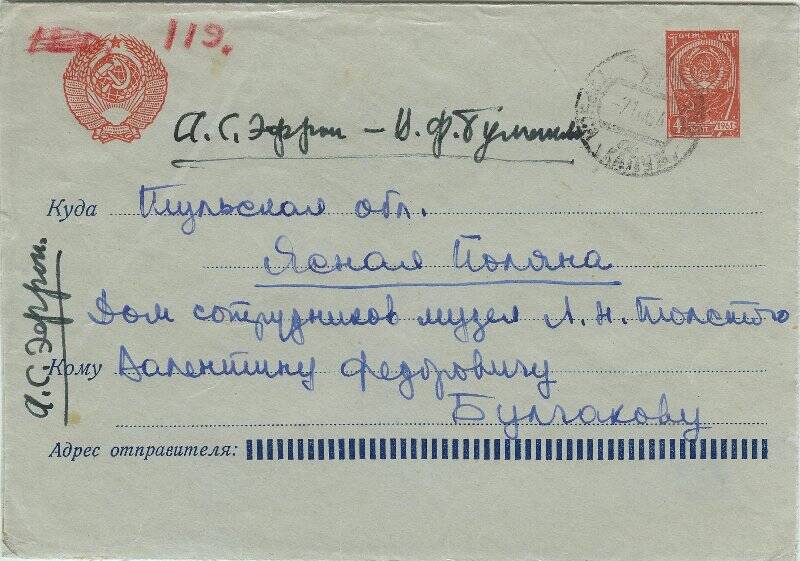 119.
ПОЧТА СССР
4 КОП. 1961
А. С. Эфрон – В. Ф. Булгаков
Куда Тульская обл.
Ясная Поляна
Дом сотрудников музея Л. Н. Толстого
Кому Валентину Федоровичу
Булгакову
Адрес отправителя:
А. С. Эфрон.